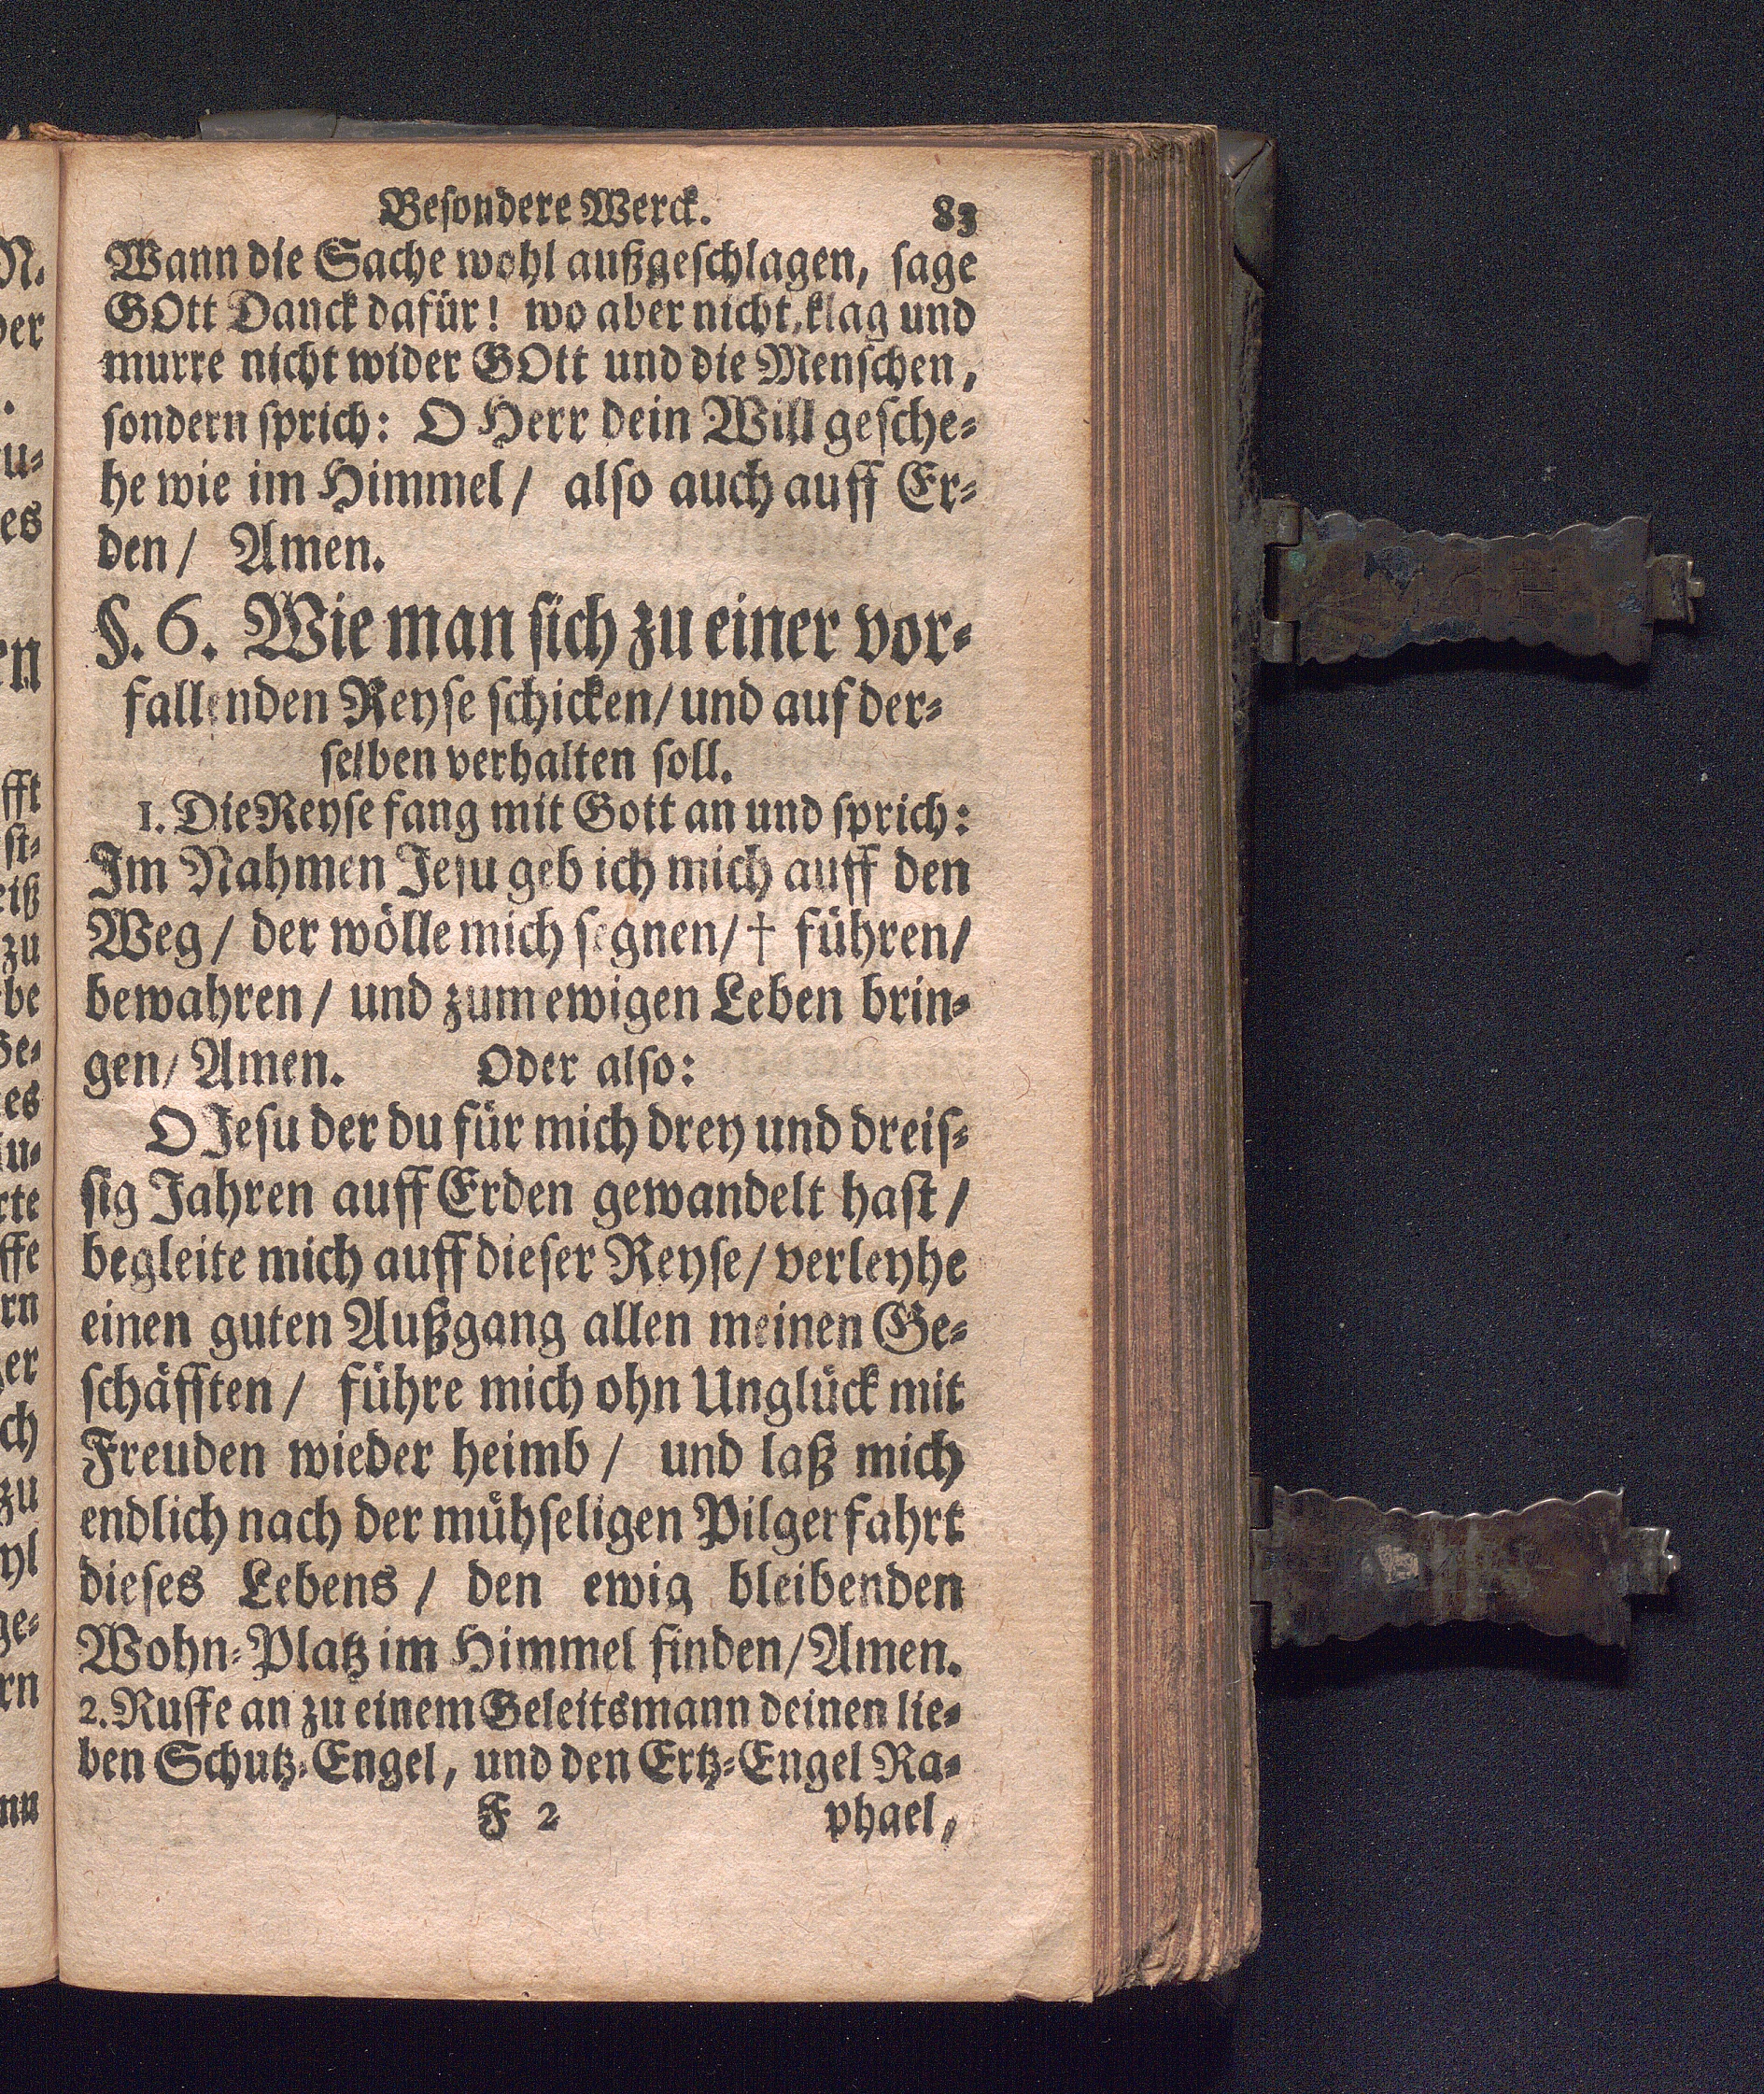 Besondere Werck. 83
Wann die Sache wohl außgeschlagen, sage
GOtt Danck dafür! wo aber nicht, klag und
murre nicht wider GOtt und die Menschen,
sondern sprich: O Herr dein Will gesche-
he wie im Himmel / also auch auff Er-
den / Amen.
§. 6. Wie man sich zu einer vor-
fallenden Reyse schicken / und auf der-
selben verhalten soll.
1. Die Reyse fang mit Gott an und sprich:
Im Nahmen Jesu geb ich mich auff den
Weg / der wölle mich segnen / † führen /
bewahren / und zum ewigen Leben brin-
gen / Amen. Oder also:
O Jesu der du für mich drey und dreis-
sig Jahren auff Erden gewandelt hast /
begleite mich auff dieser Reyse / verleyhe
einen guten Außgang allen meinen Ge-
schäfften / führe mich ohn Unglück mit
Freuden wieder heimb / und laß mich
endlich nach der mühseligen Pilgerfahrt
dieses Lebens / den ewig bleibenden
Wohn-Platz im Himmel finden / Amen.
2. Ruffe an zu einem Geleitsmann deinen lie-
ben Schutz-Engel, und den Ertz-Engel Ra-
F 2 phael,